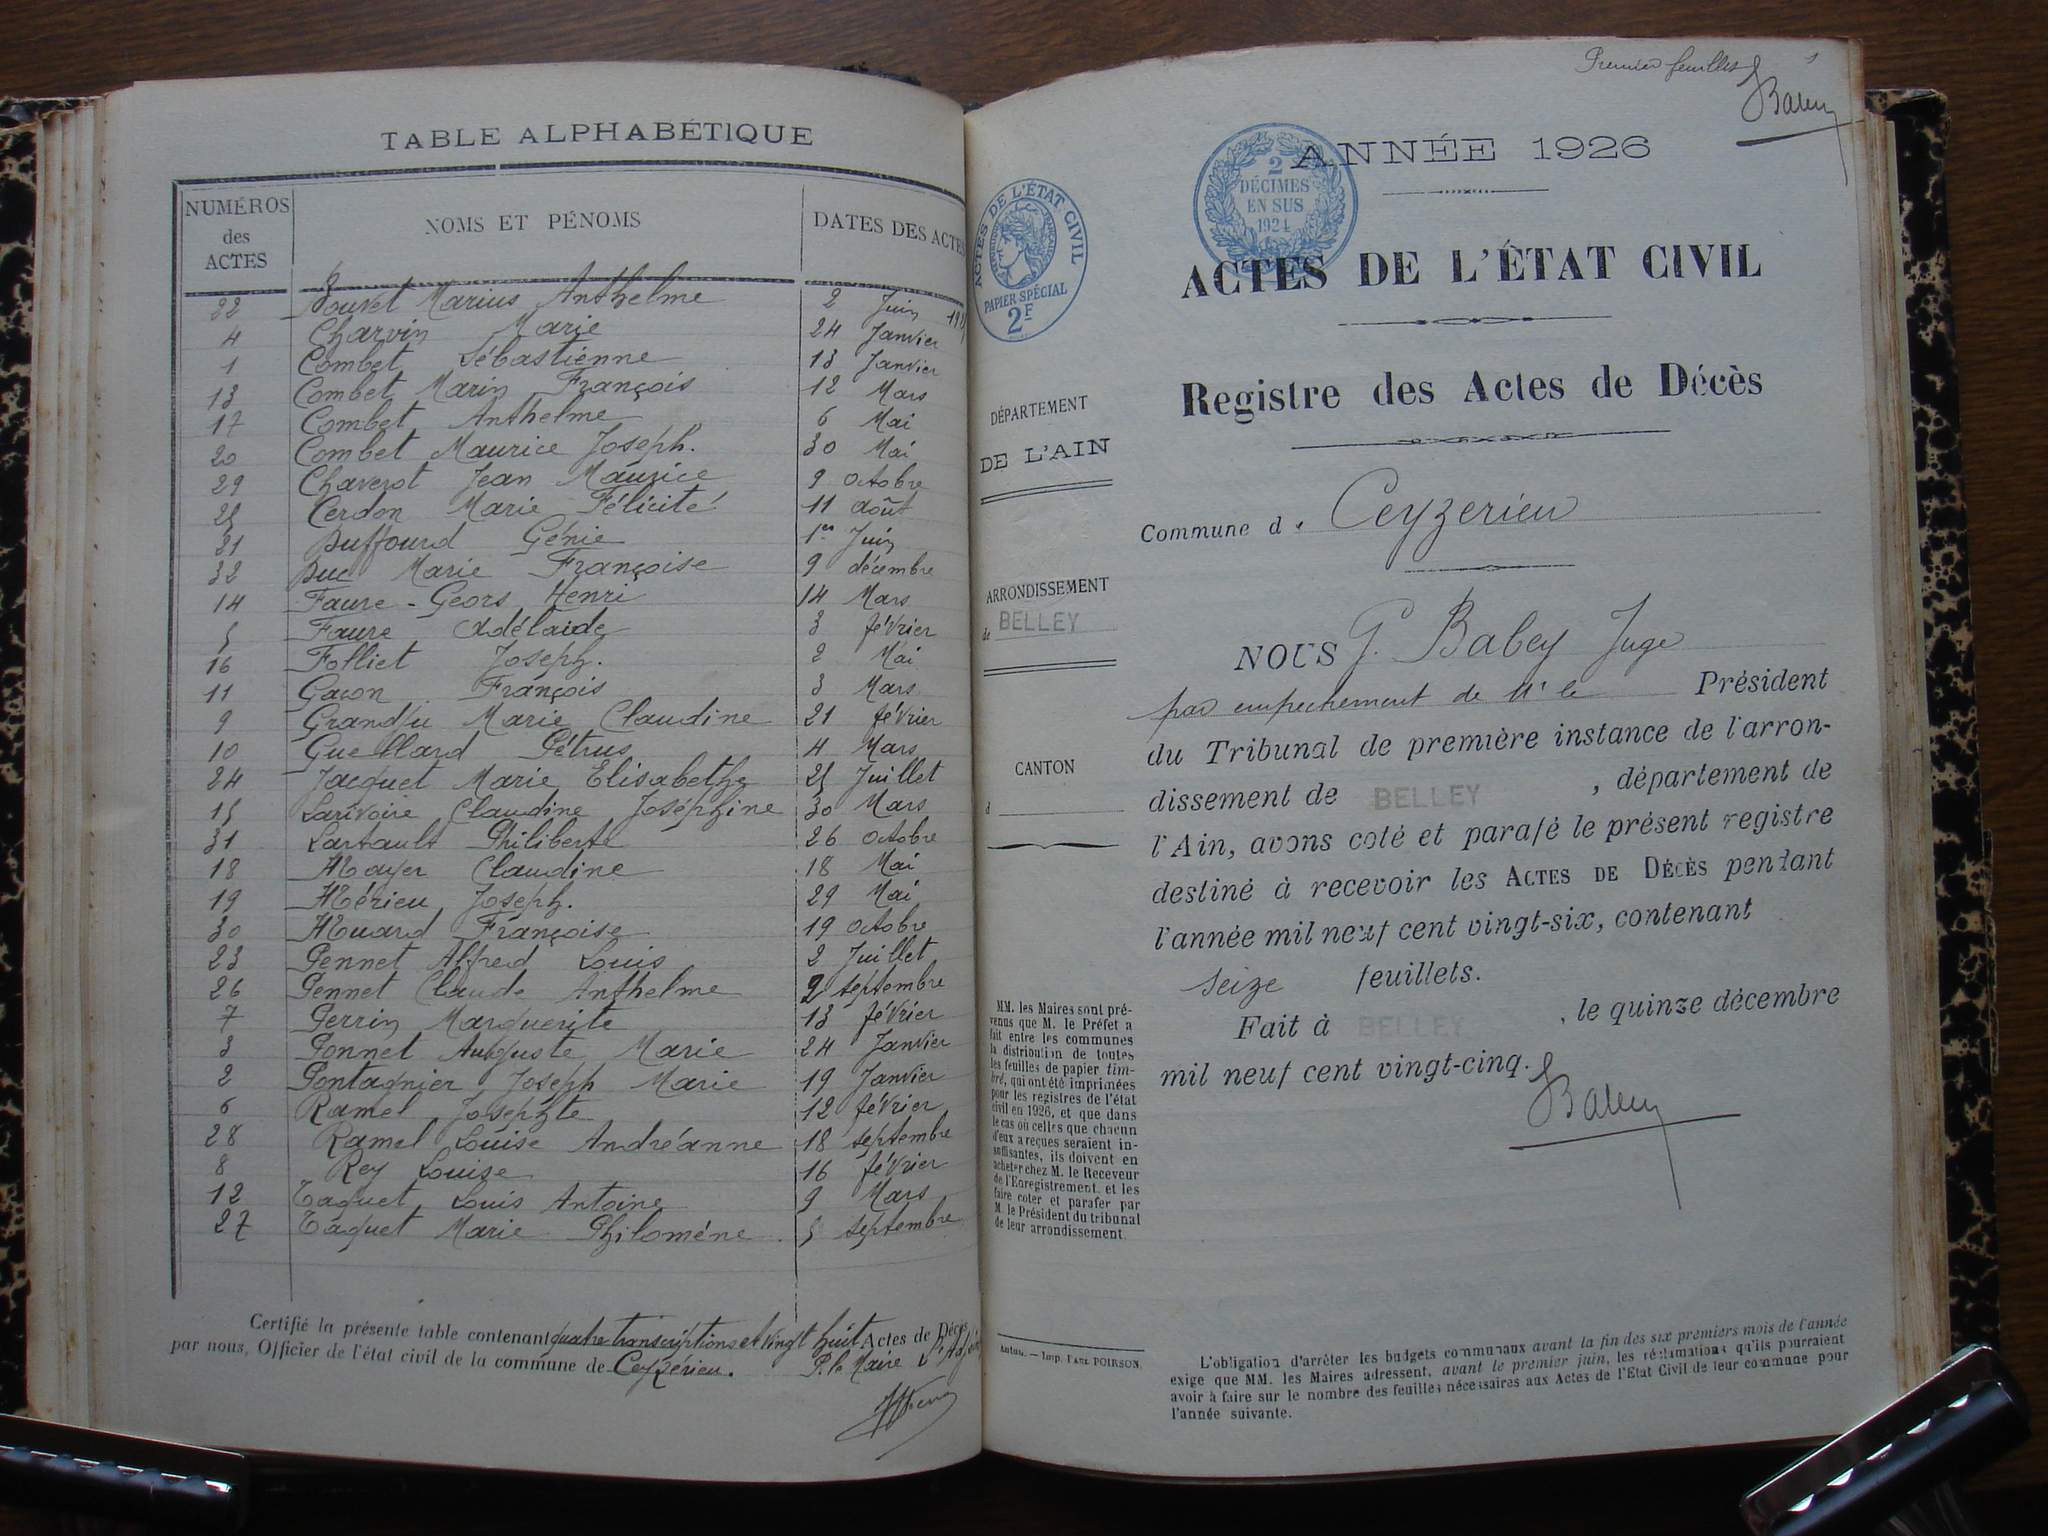 TABLE ALPHABÉTIQUE
NUMÉROS des ACTES NOMS ET PÉNOMS DATES DES ACTES
22 Bouvet Marius Anthelme 2 Juin
4 Charvin Marie 24 Janvier
1 Combet Sébastienne 13 Janvier
13 Combet Marin François 12 Mars
17 Combet Anthelme 6 Mai
20 Combet Maurice Joseph. 30 Mai
29 Chaverot Jean Maurice 9 octobre
25 Cerdon Marie Félicité 11 août
21 Duffourd Génie 1er Juin
32 Duc Marie Françoise 9 décembre
14 Faure-Geors Henri 14 Mars
5 Faure Adélaide 3 février
16 Folliet Joseph. 2 Mai
11 Gacon François 3 Mars
9 Grandju Marie Claudine 21 février
10 Guebbard Pétrus 4 Mars
24 Jacquet Marie Elisabeth 25 Juillet
15 Larivoire Claudine Joséphine 30 Mars
31 Lartault Philiberte 26 octobre
18 Mayer Claudine 18 Mai
19 Mérieu Joseph. 29 Mai
30 Muard Françoise 19 octobre
23 Pennet Alfred Louis 2 Juillet
26 Pennet Claude Anthelme 2 septembre
7 Perrin Marguerite 13 février
3 Ponnet Auguste Marie 24 Janvier
2 Pontagnier Joseph Marie 19 Janvier
6 Ramel Josephte 12 février
28 Ramel Louise Andréanne 18 septembre
8 Rey Louise 16 février
12 Taquet Louis Antoine 9 Mars
27 Taquet Marie Philomène 5 septembre
Certifié la présente table contenant quatre transcriptions et vingt huit Actes de Décès
par nous, Officier de l'état civil de la commune de Ceyzérieu. P. le Maire
Premier feuillet 1
Babey
ANNÉE 1926
2 DÉCIMES EN SUS 1924
ACTES DE L'ÉTAT CIVIL
PAPIER SPÉCIAL
2F
ACTES DE L'ÉTAT CIVIL
Registre des Actes de Décès
DÉPARTEMENT
DE L'AIN
Commune de Ceyzerieu
ARRONDISSEMENT
de BELLEY
CANTON
d
NOUS G. Babey Juge
par empechement de Mr le Président
du Tribunal de première instance de l'arron-
dissement de BELLEY, département de
l'Ain, avons coté et parafé le présent registre
destiné à recevoir les ACTES DE DÉCÈS pendant
l'année mil neuf cent vingt-six, contenant
seize feuillets.
Fait à BELLEY, le quinze décembre
mil neuf cent vingt-cinq.
Babey
MM. les Maires sont pré-
venus que M. le Préfet a
fait entre les communes
la distribution de toutes
les feuilles de papier tim-
bré, qui ont été imprimées
pour les registres de l'état
civil en 1926, et que dans
le cas où celles que chacun
d'eux a reçues seraient in-
suffisantes, ils doivent en
acheter chez M. le Receveur
de l'Enregistrement, et les
faire coter et parafer par
M. le Président du tribunal
de leur arrondissement.
Autun. — Imp. Paul POIRSON.
L'obligation d'arrêter les budgets communaux avant la fin des six premiers mois de l'année
exige que MM. les Maires adressent, avant le premier juin, les réclamations qu'ils pourraient
avoir à faire sur le nombre des feuilles nécessaires aux Actes de l'Etat Civil de leur commune pour
l'année suivante.